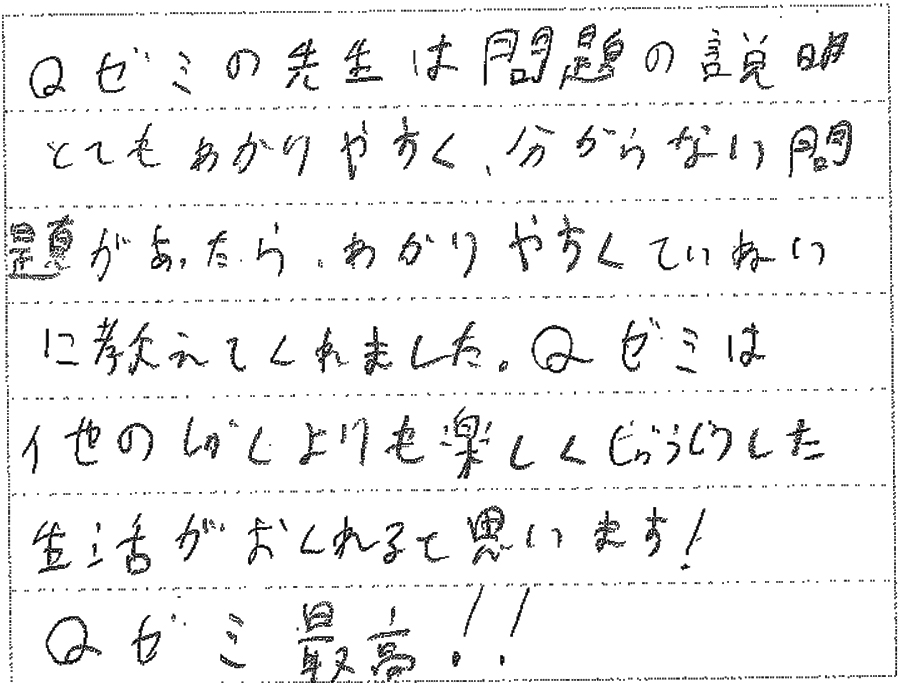 Qゼミの先生は問題の説明
とてもわかりやすく、分からない問
題があったら、わかりやすくていねい
に教えてくれました。Qゼミは
他のじゅくよりも楽しくじゅうじつした
生活がおくれると思います!
Qゼミ最高!!